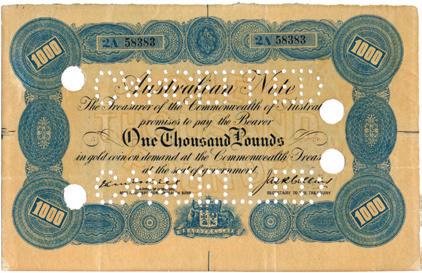 1000 2A 58383 2A 58383 1000
Australian Note
The Treasurer of the Commonwealth of Austral
promises to pay the Bearer
One Thousand Pounds
in gold coin on demand at the Commonwealth Treas
at the seat of government
Jas R Collins
SECRETARY TO THE TREASURY
1000 1000